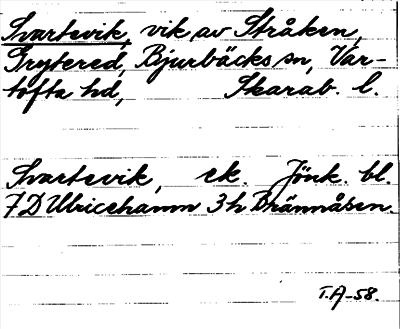 Svartevik, vik av Stråken,
Grytered, Bjurbäcks sn, Var-
tofta hd, Skarab. l.
Svartevik, ek. Jönk. bl.
7D Ulricehamn 3h Brännåsen.
T.A-58.